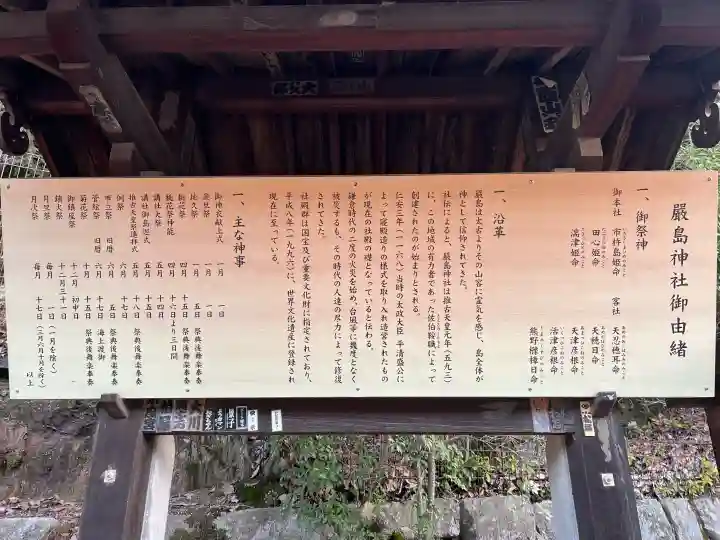 嚴島神社御由緒
一、御祭神
御本社 市杵島姫命 客社 天忍穂耳命
田心姫命 天穂日命
湍津姫命 天津彦根命
活津彦根命
熊野櫲樟日命
一、沿革
嚴島は太古よりその山容に霊気を感じ、島全体が
神として信仰されてきた。
社伝によると、嚴島神社は推古天皇元年(五九三)
に、この地域の有力者であった佐伯鞍職によって
創建されたのが始まりとされる。
仁安三年(一一六八)当時の太政大臣 平清盛公に
よって寝殿造りの様式を取り入れ造営されたもの
が現在の社殿の礎となっていると伝わる。
鎌倉時代の二度の火災を始め、台風等に幾度となく
被災するも、その時代の人達の尽力によって修復
されてきた。
社殿群は国宝及び重要文化財に指定されており、
平成八年(一九九六)に、世界文化遺産に登録され
現在に至っている。
一、主な神事
御神衣献上式 一月 一日
歳旦祭 一月 一日
地久祭 一月 五日 祭典後舞楽奉奏
桃花祭 四月 十五日 祭典後舞楽奉奏
桃花祭神能 四月 十六日より三日間
講社大祭 五月 十四日
講社御島巡式 五月 十五日
推古天皇祭遙拝式 五月 十八日 祭典後舞楽奉奏
例祭 六月 十七日
市立祭 旧暦 六月 五日 祭典後舞楽奉奏
管絃祭 旧暦 六月 十七日 海上渡御
菊花祭 十月 十五日 祭典後舞楽奉奏
御鎮座祭 十二月 初申日
鎮火祭 十二月三十一日
月旦祭 毎月 一日(一月を除く)
月次祭 毎月 十七日(三月六月十月を除く)
以上